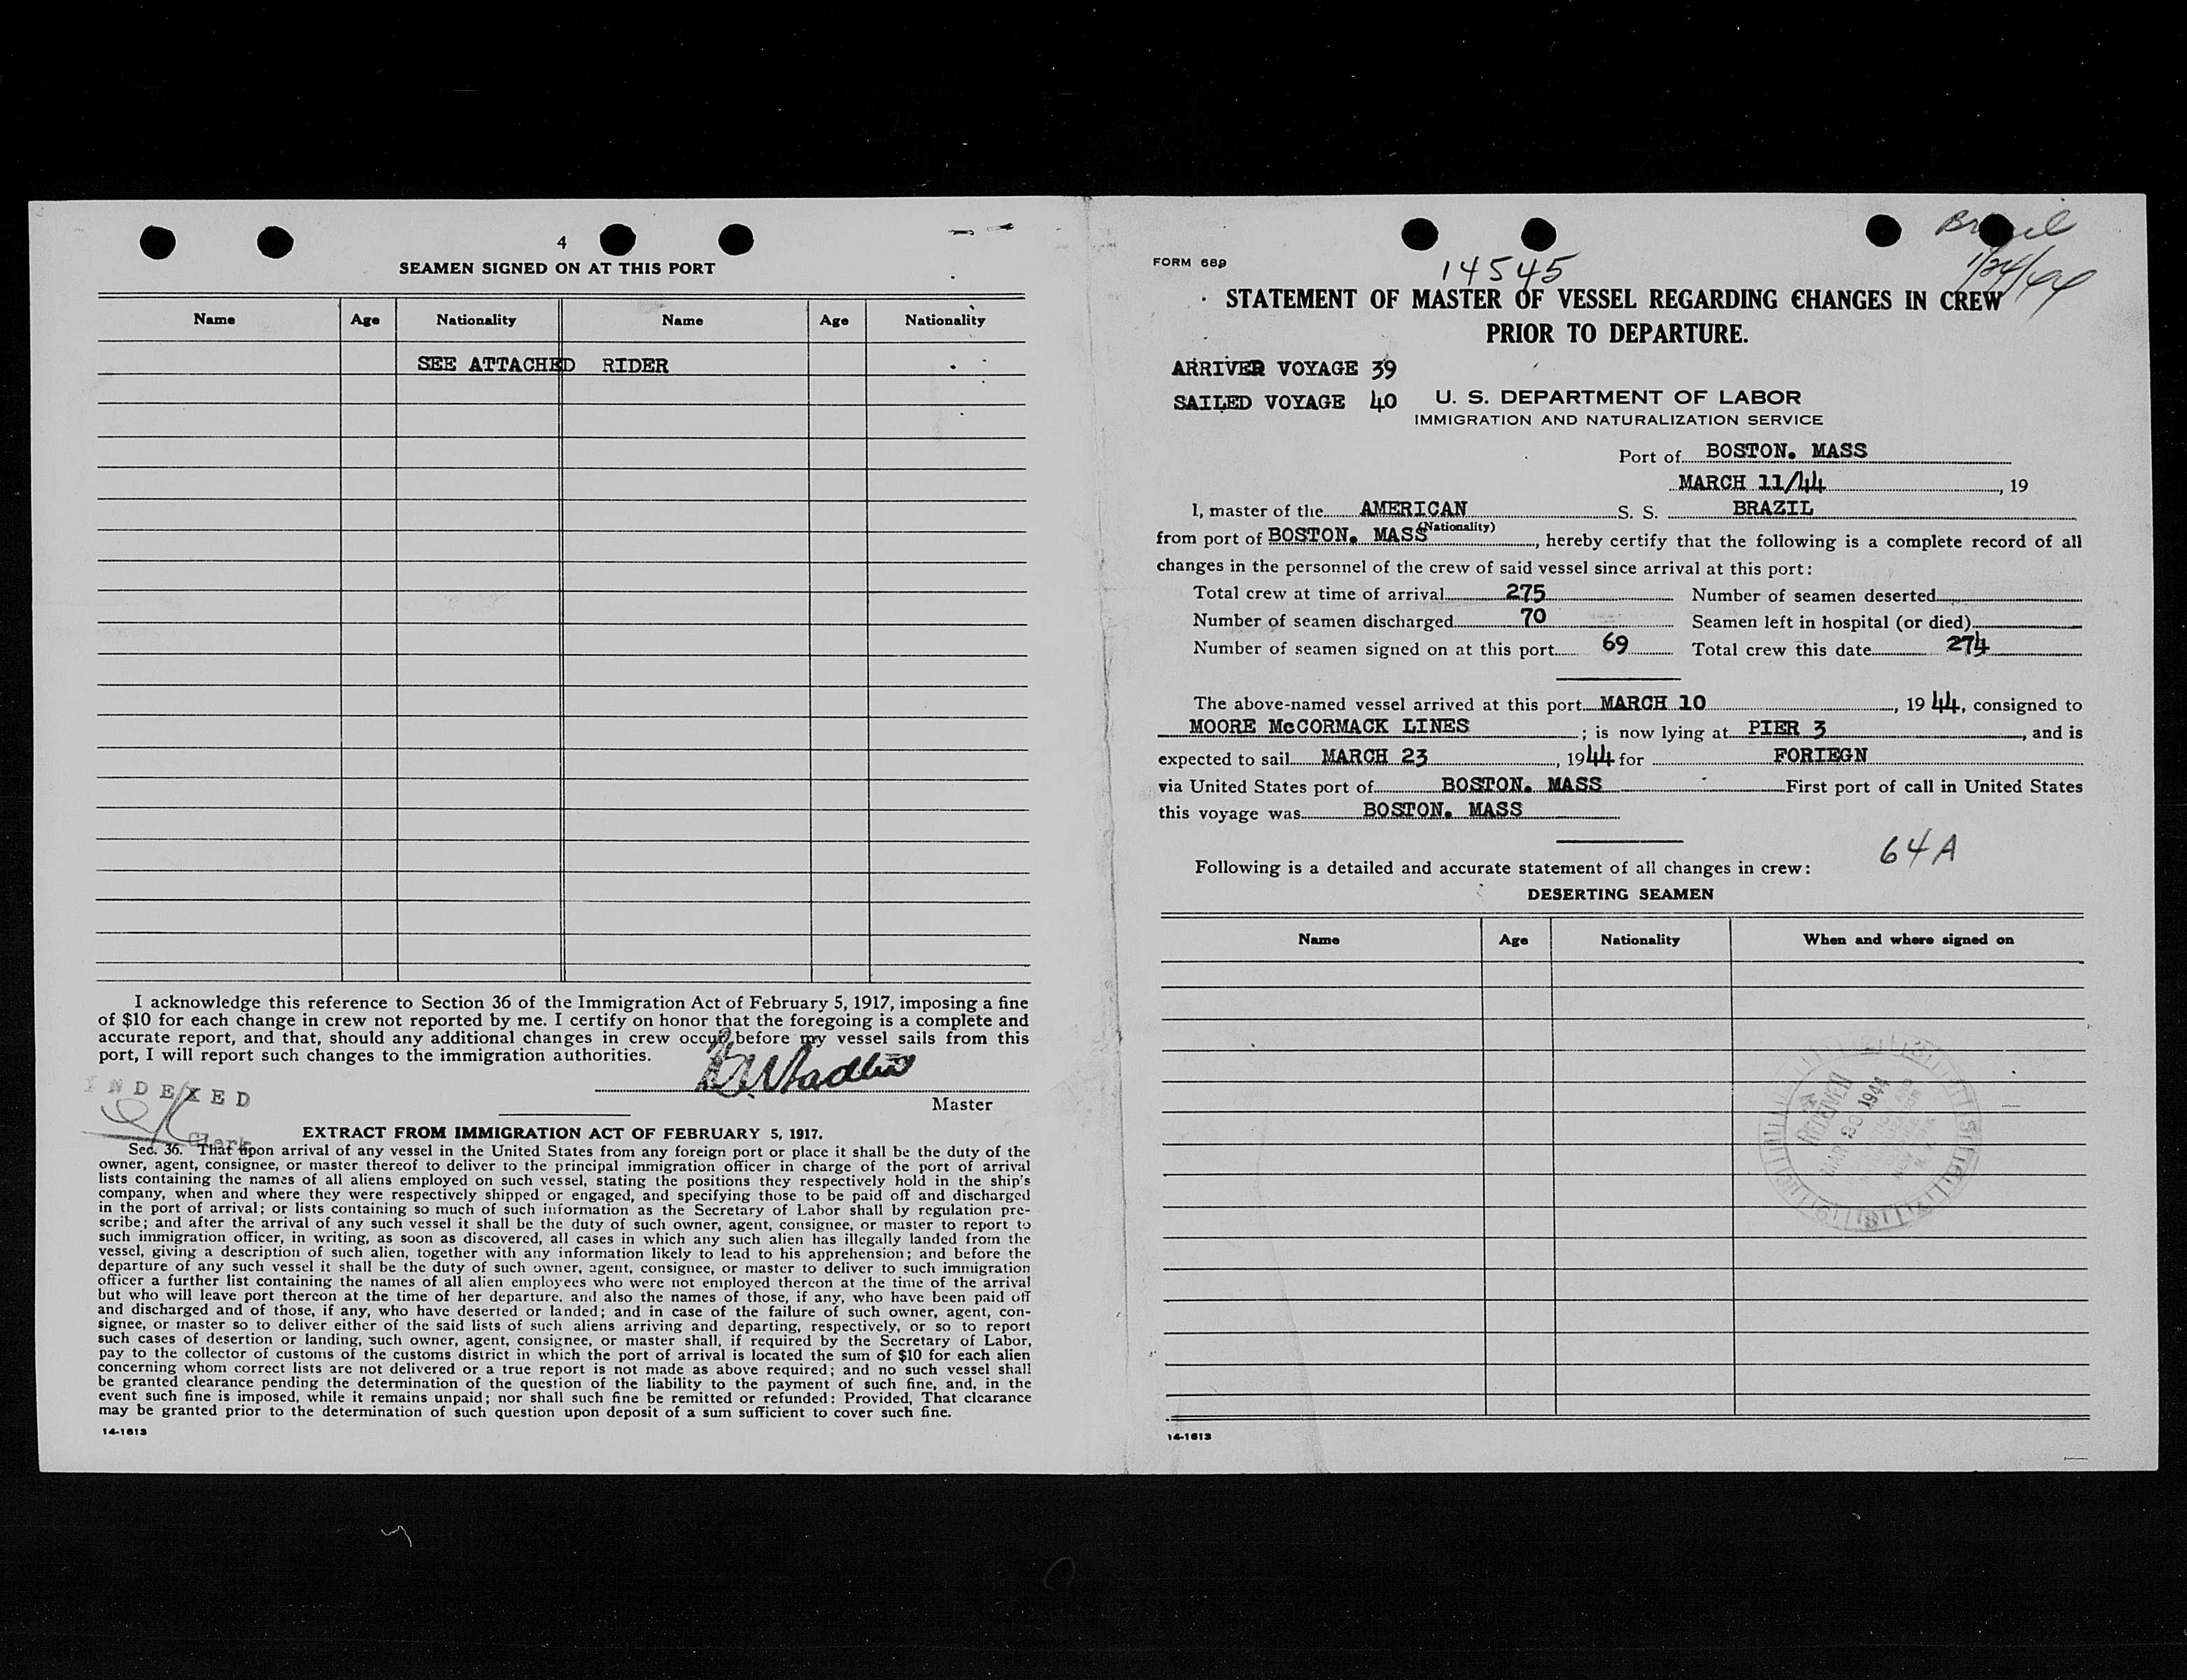 4
SEAMEN SIGNED ON AT THIS PORT
Name Age Nationality Name Age Nationality
SEE ATTACHED RIDER
I acknowledge this reference to Section 36 of the Immigration Act of February 5, 1917, imposing a fine
of $10 for each change in crew not reported by me. I certify on honor that the foregoing is a complete and
accurate report, and that, should any additional changes in crew occur before my vessel sails from this
port, I will report such changes to the immigration authorities.
Master
INDEXED
Clerk
EXTRACT FROM IMMIGRATION ACT OF FEBRUARY 5, 1917.
Sec. 36. That upon arrival of any vessel in the United States from any foreign port or place it shall be the duty of the
owner, agent, consignee, or master thereof to deliver to the principal immigration officer in charge of the port of arrival
lists containing the names of all aliens employed on such vessel, stating the positions they respectively hold in the ship's
company, when and where they were respectively shipped or engaged, and specifying those to be paid off and discharged
in the port of arrival; or lists containing so much of such information as the Secretary of Labor shall by regulation pre-
scribe; and after the arrival of any such vessel it shall be the duty of such owner, agent, consignee, or master to report to
such immigration officer, in writing, as soon as discovered, all cases in which any such alien has illegally landed from the
vessel, giving a description of such alien, together with any information likely to lead to his apprehension; and before the
departure of any such vessel it shall be the duty of such owner, agent, consignee, or master to deliver to such immigration
officer a further list containing the names of all alien employees who were not employed thereon at the time of the arrival
but who will leave port thereon at the time of her departure, and also the names of those, if any, who have been paid off
and discharged and of those, if any, who have deserted or landed; and in case of the failure of such owner, agent, con-
signee, or master so to deliver either of the said lists of such aliens arriving and departing, respectively, or so to report
such cases of desertion or landing, such owner, agent, consignee, or master shall, if required by the Secretary of Labor,
pay to the collector of customs of the customs district in which the port of arrival is located the sum of $10 for each alien
concerning whom correct lists are not delivered or a true report is not made as above required; and no such vessel shall
be granted clearance pending the determination of the question of the liability to the payment of such fine, and, in the
event such fine is imposed, while it remains unpaid; nor shall such fine be remitted or refunded: Provided, That clearance
may be granted prior to the determination of such question upon deposit of a sum sufficient to cover such fine.
14-1613
Brazil
1/24/44
FORM 689
14545
STATEMENT OF MASTER OF VESSEL REGARDING CHANGES IN CREW
PRIOR TO DEPARTURE.
ARRIVED VOYAGE 39
SAILED VOYAGE 40
U. S. DEPARTMENT OF LABOR
IMMIGRATION AND NATURALIZATION SERVICE
Port of BOSTON. MASS
MARCH 11/44, 19
I, master of the AMERICAN S. S. BRAZIL
(Nationality)
from port of BOSTON. MASS, hereby certify that the following is a complete record of all
changes in the personnel of the crew of said vessel since arrival at this port:
Total crew at time of arrival 275 Number of seamen deserted
Number of seamen discharged 70 Seamen left in hospital (or died)
Number of seamen signed on at this port 69 Total crew this date 274
The above-named vessel arrived at this port MARCH 10, 1944, consigned to
MOORE McCORMACK LINES; is now lying at PIER 3, and is
expected to sail MARCH 23, 1944 for FORIEGN
via United States port of BOSTON. MASS First port of call in United States
this voyage was BOSTON. MASS
64A
Following is a detailed and accurate statement of all changes in crew:
DESERTING SEAMEN
Name Age Nationality When and where signed on
RECEIVED
MAR 30 1944
14-1613